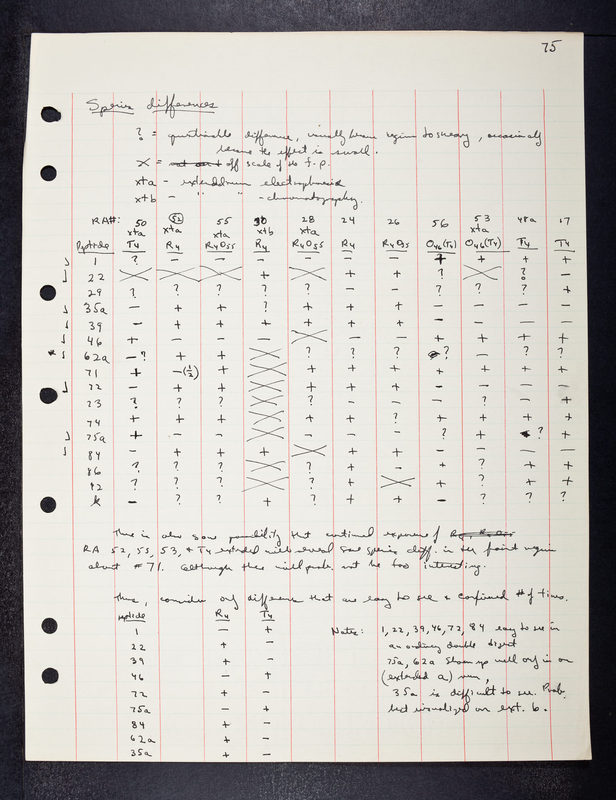 75
Species differences
? = questionable difference, usually because region too smeary, occasionally
because the effect is small.
X = not on off scale of the f.p.
xta - extended run electrophoresis
xtb - " " - chromatography
RA#: 50 52 55 30 28 24 26 56 53 48a 17
xta xta xta xtb xta xta
Peptide T4 R4 R4O55 R4 R4O55 R4 R4O55 O46(T4) O46(T4) T4 T4
1 ? - - - - - - + + + +
22 X X X + X + + ? X ? -
29 ? ? ? ? ? ? ? ? ? ? +
35a - + + ? + + + - - - -
39 - + + + + + + - - - -
46 + - - - X - - + + + +
62a -? + + X ? ? ? ? - ? ?
71 + -(1/2) + X + + + + + + +
72 - + + X + + + - - - -
73 ? ? ? X ? - - - ? - +
74 + + + X + + ? + + + +
75a + - - X - - - ? + ? +
84 - + + + X + + - + - -
86 ? ? ? X ? + - + ? + +
92 ? ? ? X ? + X - ? - +
k - ? ? + ? + + - ? ? ?
There is also some possibility that continued exposure of
RA 52, 55, 53, & T4 extended will reveal some species diff. in the faint region
about #71. Although this will prob. not be too interesting.
Thus, consider only differences that are easy to see & confirmed # of times.
peptide R4 T4
1 - +
22 + -
39 + -
46 - +
72 + -
75a - +
84 + -
62a + -
35a + -
Note: 1, 22, 39, 46, 72, 84 easy to see in
an ordinary double digest
75a, 62a show up well only in an
(extended a) run,
35a is difficult to see. Prob.
best visualized on ext. b.